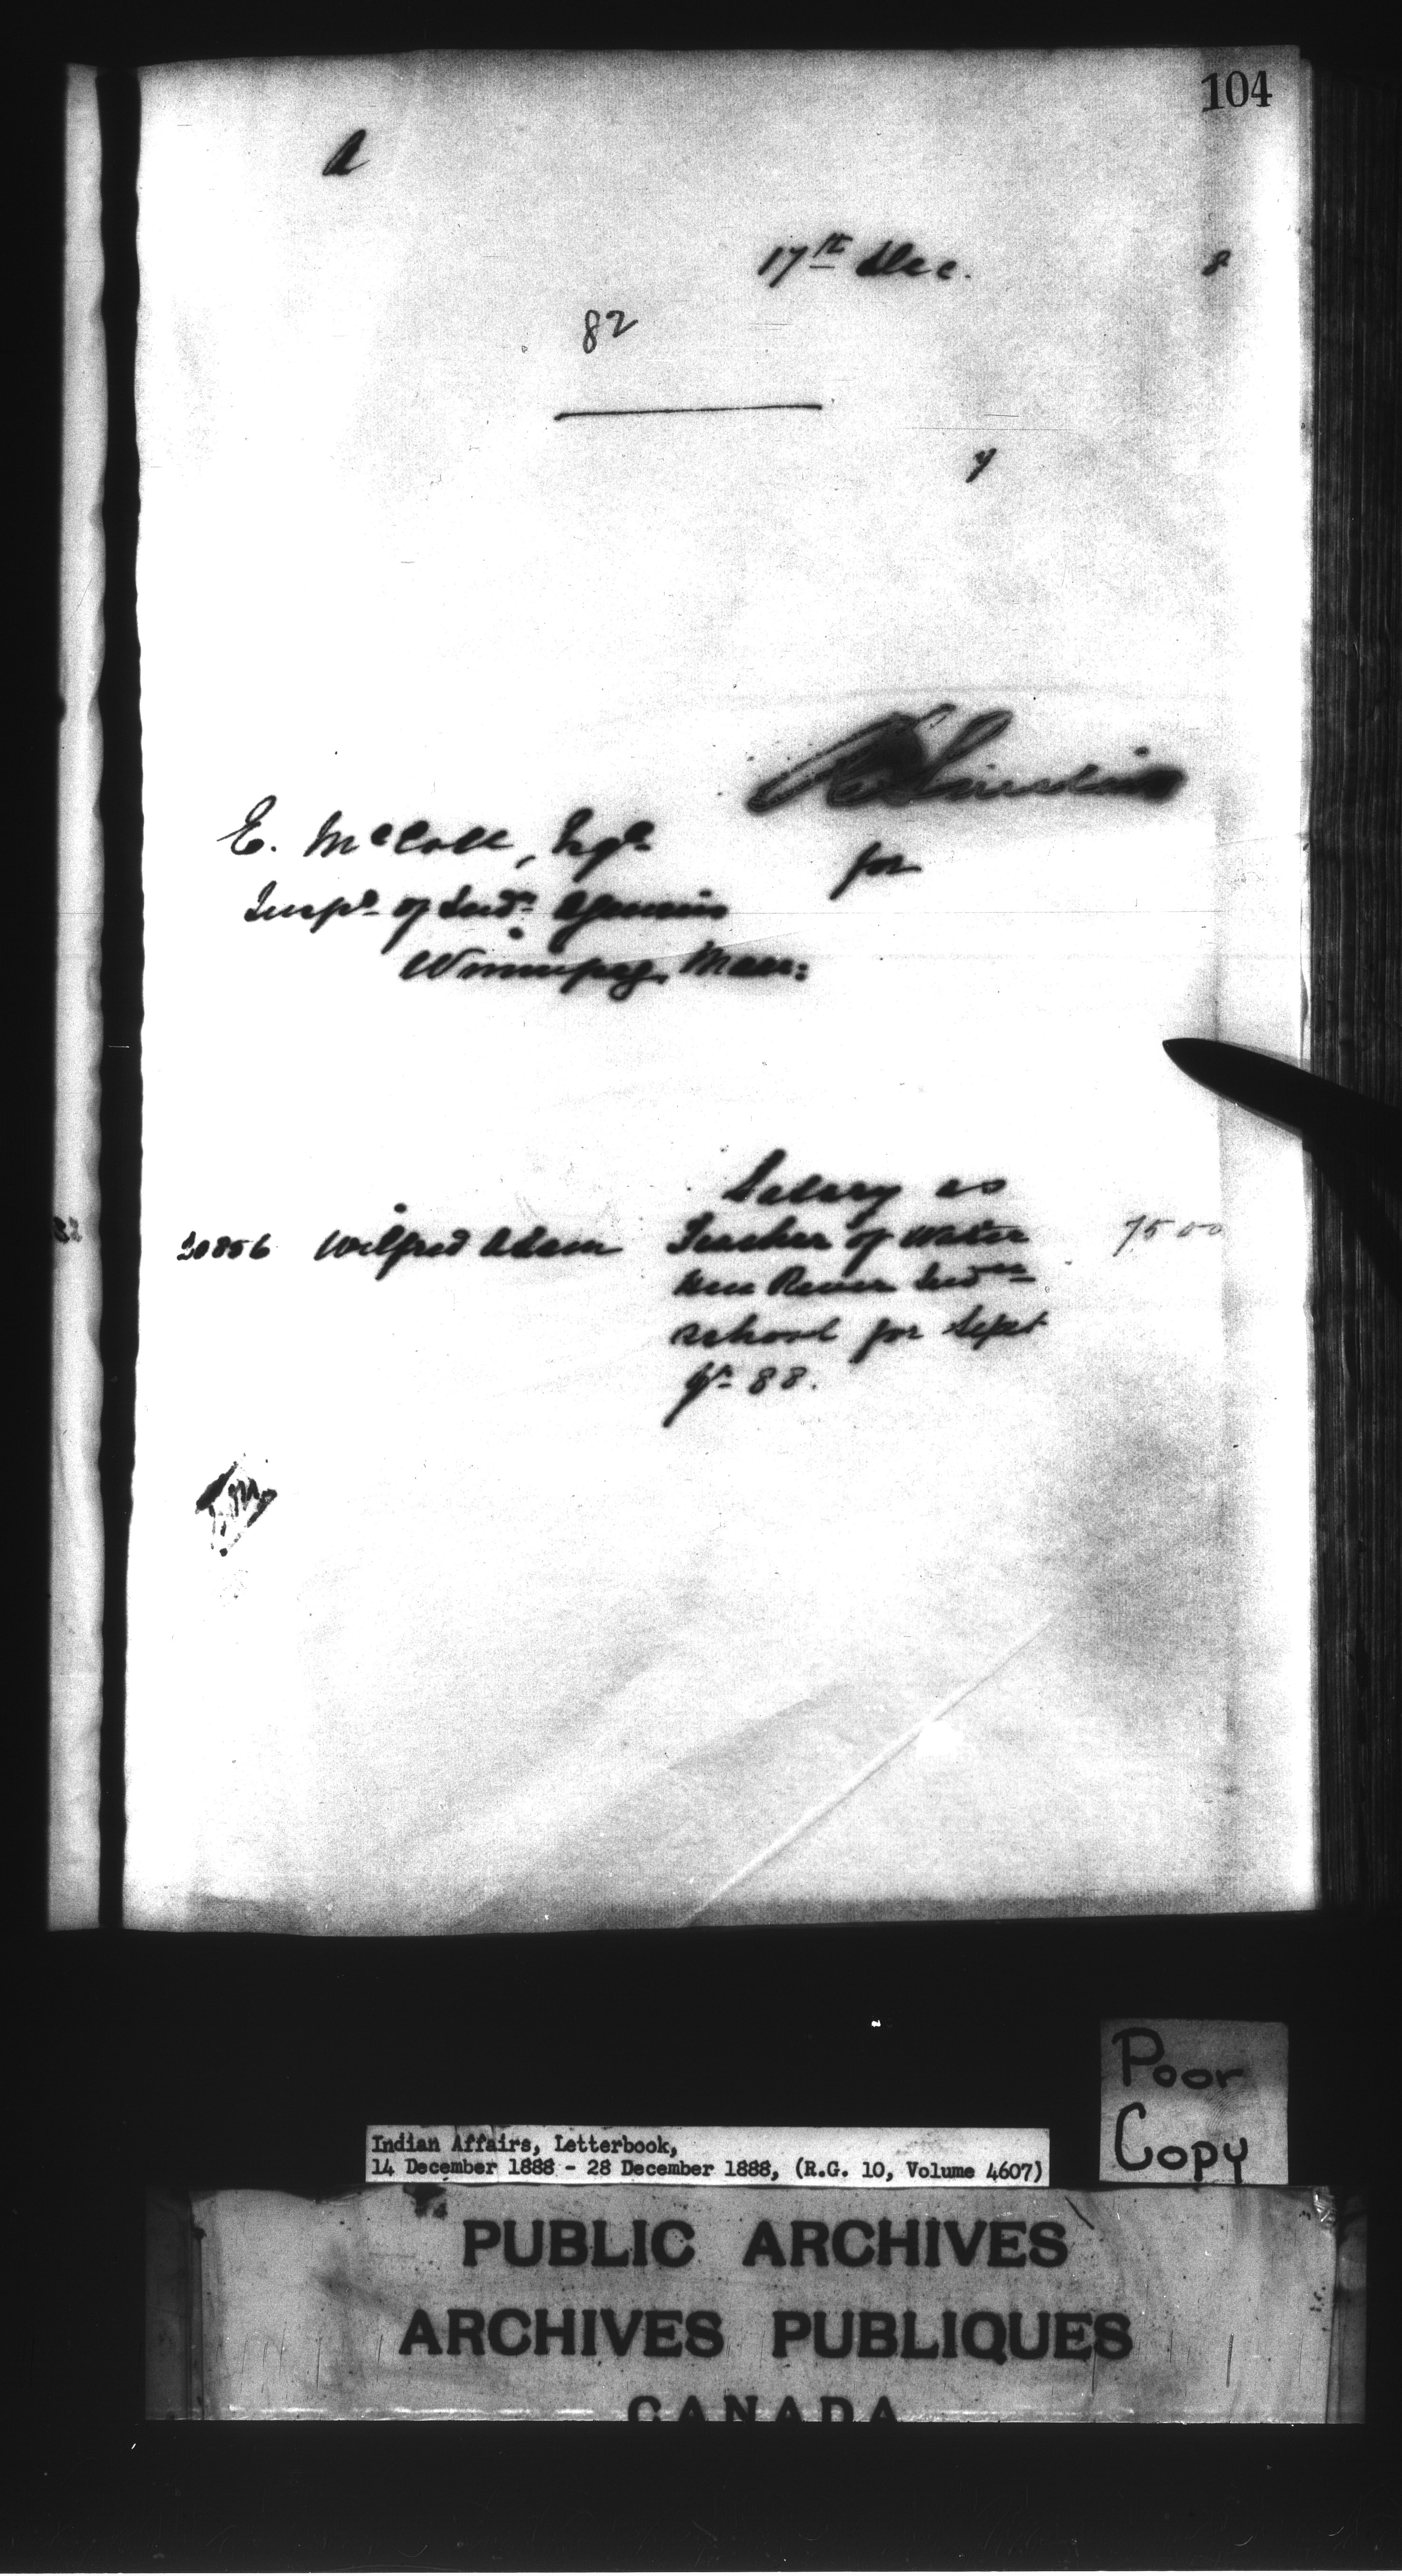 104
A
17th Dec. 8
82
y
R Sinclair
E. McColl, Esqe
for
Inspr of Indn Agencies
Winnipeg, Man:
Salary as
30856 Wilfred Adam Teacher of Water 75 00
Hen River Indn
school for Sept
Qr 88.
Poor
Copy
Indian Affairs, Letterbook,
14 December 1888 - 28 December 1888, (R.G. 10, Volume 4607)
PUBLIC ARCHIVES
ARCHIVES PUBLIQUES
CANADA